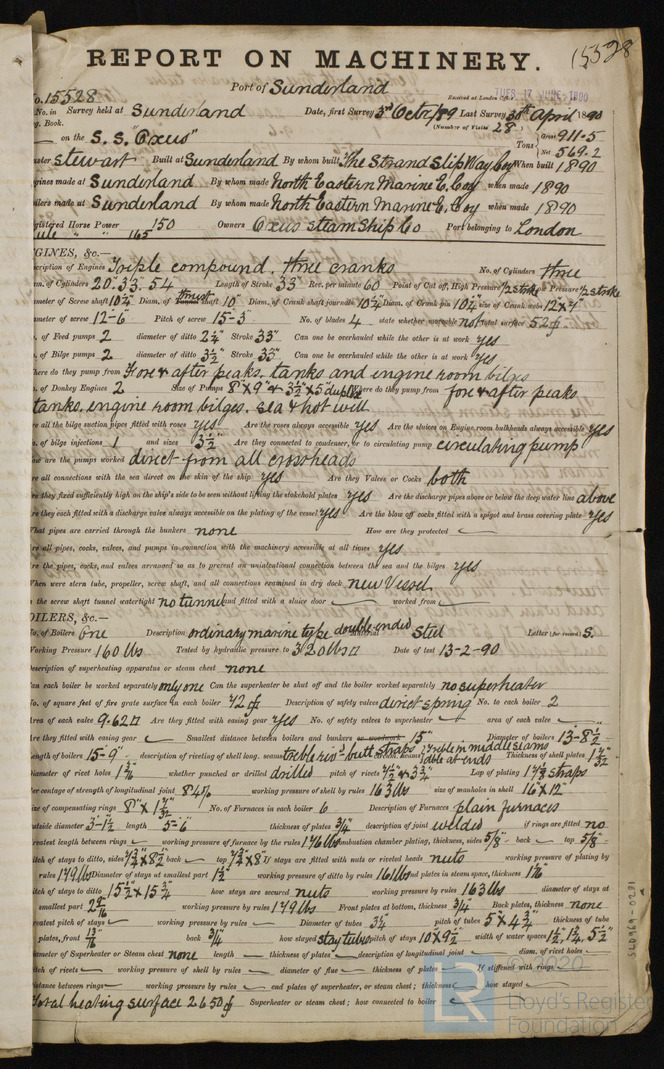 REPORT ON MACHINERY.
15528
Port of Sunderland
Received at London Office TUES. 17 JUNE 1890
No. 15528
No. in Survey held at Sunderland Date, first Survey 3rd Octr/89 Last Survey 30th April 1890
g. Book. (Number of Visits 28)
on the S.S. "Oxus" Tons Gross 911.5 Net 569.2
ster Stewart Built at Sunderland By whom built The Strand Slip Way Coy When built 1890
gines made at Sunderland By whom made North Eastern Marine E. Coy when made 1890
ilers made at Sunderland By whom made North Eastern Marine E. Coy when made 1890
gistered Horse Power 150 Owners Oxus Steam Ship Co Port belonging to London
165
GINES, &c.—
scription of Engines Triple compound. three cranks No. of Cylinders three
m. of Cylinders 20. 33. 54 Length of Stroke 33 Rev. per minute 60 Point of Cut off, High Pressure 1/2 stroke Pressure 1/2 stroke
meter of Screw shaft 10 3/4" Diam. of thrust shaft 10" Diam. of Crank shaft journals 10 1/4" Diam. of Crank pin 10 1/4" size of Crank webs 12 x 7"
meter of screw 12-6" Pitch of screw 15-3" No. of blades 4 state whether moveable not total surface 52
. of Feed pumps 2 diameter of ditto 2 3/4" Stroke 33" Can one be overhauled while the other is at work yes
. of Bilge pumps 2 diameter of ditto 3 1/2" Stroke 33" Can one be overhauled while the other is at work yes
here do they pump from Fore & after peaks, tanks and engine room bilges
. of Donkey Engines 2 Size of Pumps 8" x 9" & 3 1/2" x 5" duplex Where do they pump from fore & after peaks
tanks, engine room bilges. sea & hot well
re all the bilge suction pipes fitted with roses yes Are the roses always accessible yes Are the sluices on Engine room bulkheads always accessible yes
. of bilge injections 1 and sizes 3 1/2" Are they connected to condenser, or to circulating pump circulating pump
ow are the pumps worked direct from all crossheads
re all connections with the sea direct on the skin of the ship yes Are they Valves or Cocks both
re they fixed sufficiently high on the ship's side to be seen without lifting the stokehold plates yes Are the discharge pipes above or below the deep water line above
re they each fitted with a discharge valve always accessible on the plating of the vessel yes Are the blow off cocks fitted with a spigot and brass covering plate yes
What pipes are carried through the bunkers none How are they protected
re all pipes, cocks, valves, and pumps in connection with the machinery accessible at all times yes
re the pipes, cocks, and valves arranged so as to prevent an unintentional connection between the sea and the bilges yes
When were stern tube, propeller, screw shaft, and all connections examined in dry dock new Vessel
s the screw shaft tunnel watertight no tunnel and fitted with a sluice door worked from
OILERS, &c.—
No. of Boilers One Description ordinary marine type double-ended Material Steel Letter (for record) S.
Working Pressure 160 lbs Tested by hydraulic pressure to 320 lbs Date of test 13-2-90
escription of superheating apparatus or steam chest none
an each boiler be worked separately only one Can the superheater be shut off and the boiler worked separately no superheater
o. of square feet of fire grate surface in each boiler 72 Description of safety valves direct spring No. to each boiler 2
Area of each valve 9.62 Are they fitted with easing gear yes No. of safety valves to superheater area of each valve
re they fitted with easing gear Smallest distance between boilers and bunkers or woodwork 15" Diameter of boilers 13-8 1/2
ength of boilers 15-9" description of riveting of shell long. seams treble riv'd butt straps circum. seams treble in middle seams dble at ends Thickness of shell plates 1 3/32"
iameter of rivet holes 1 3/16 whether punched or drilled drilled pitch of rivets 7 3/4 & 3 3/4" Lap of plating 17 1/8 straps
er centage of strength of longitudinal joint 84% working pressure of shell by rules 163 lbs size of manholes in shell 16" x 12"
ize of compensating rings 8" x 1 7/32" No. of Furnaces in each boiler 6 Description of Furnaces plain furnaces
utside diameter 3-1 1/2" length 5-6" thickness of plates 3/4 description of joint welded if rings are fitted no
reatest length between rings working pressure of furnace by the rules 176 lbs combustion chamber plating, thickness, sides 5/8" back top 5/8"
itch of stays to ditto, sides 7 3/4" x 8 1/2" back top 7 3/4" x 8" If stays are fitted with nuts or riveted heads nuts working pressure of plating by
rules 179 lbs Diameter of stays at smallest part 1 1/2" working pressure of ditto by rules 161 lbs end plates in steam space, thickness 1 1/16"
itch of stays to ditto 15 3/4 x 15 3/4" how stays are secured nuts working pressure by rules 163 lbs diameter of stays at
smallest part 2 9/16" working pressure by rules 179 lbs Front plates at bottom, thickness 3/4" Back plates, thickness none
reatest pitch of stays working pressure by rules Diameter of tubes 3 1/4" pitch of tubes 5" x 4 3/4" thickness of tube
plates, front 13/16" back 3/4" how stayed stay tubes pitch of stays 10 x 9 1/2" width of water spaces 1 1/2", 1 1/4", 5 1/2"
iameter of Superheater or Steam chest none length thickness of plates description of longitudinal joint diam. of rivet holes
itch of rivets working pressure of shell by rules diameter of flue thickness of plates If stiffened with rings
istance between rings working pressure by rules end plates of superheater, or steam chest; thickness how stayed
Total heating surface 2650 Superheater or steam chest; how connected to boiler
SLD969-0281
LR
© 2020
Lloyd's Register
Foundation